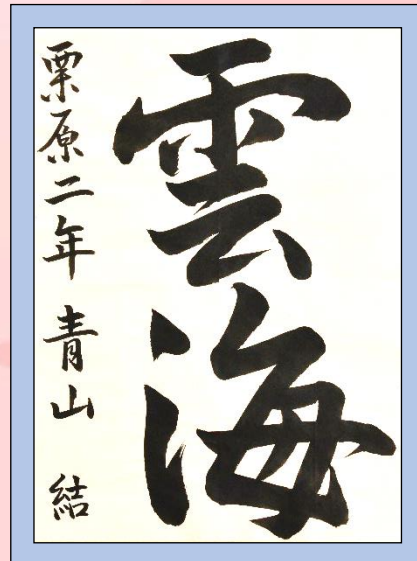 雲海
栗原二年 青山 結